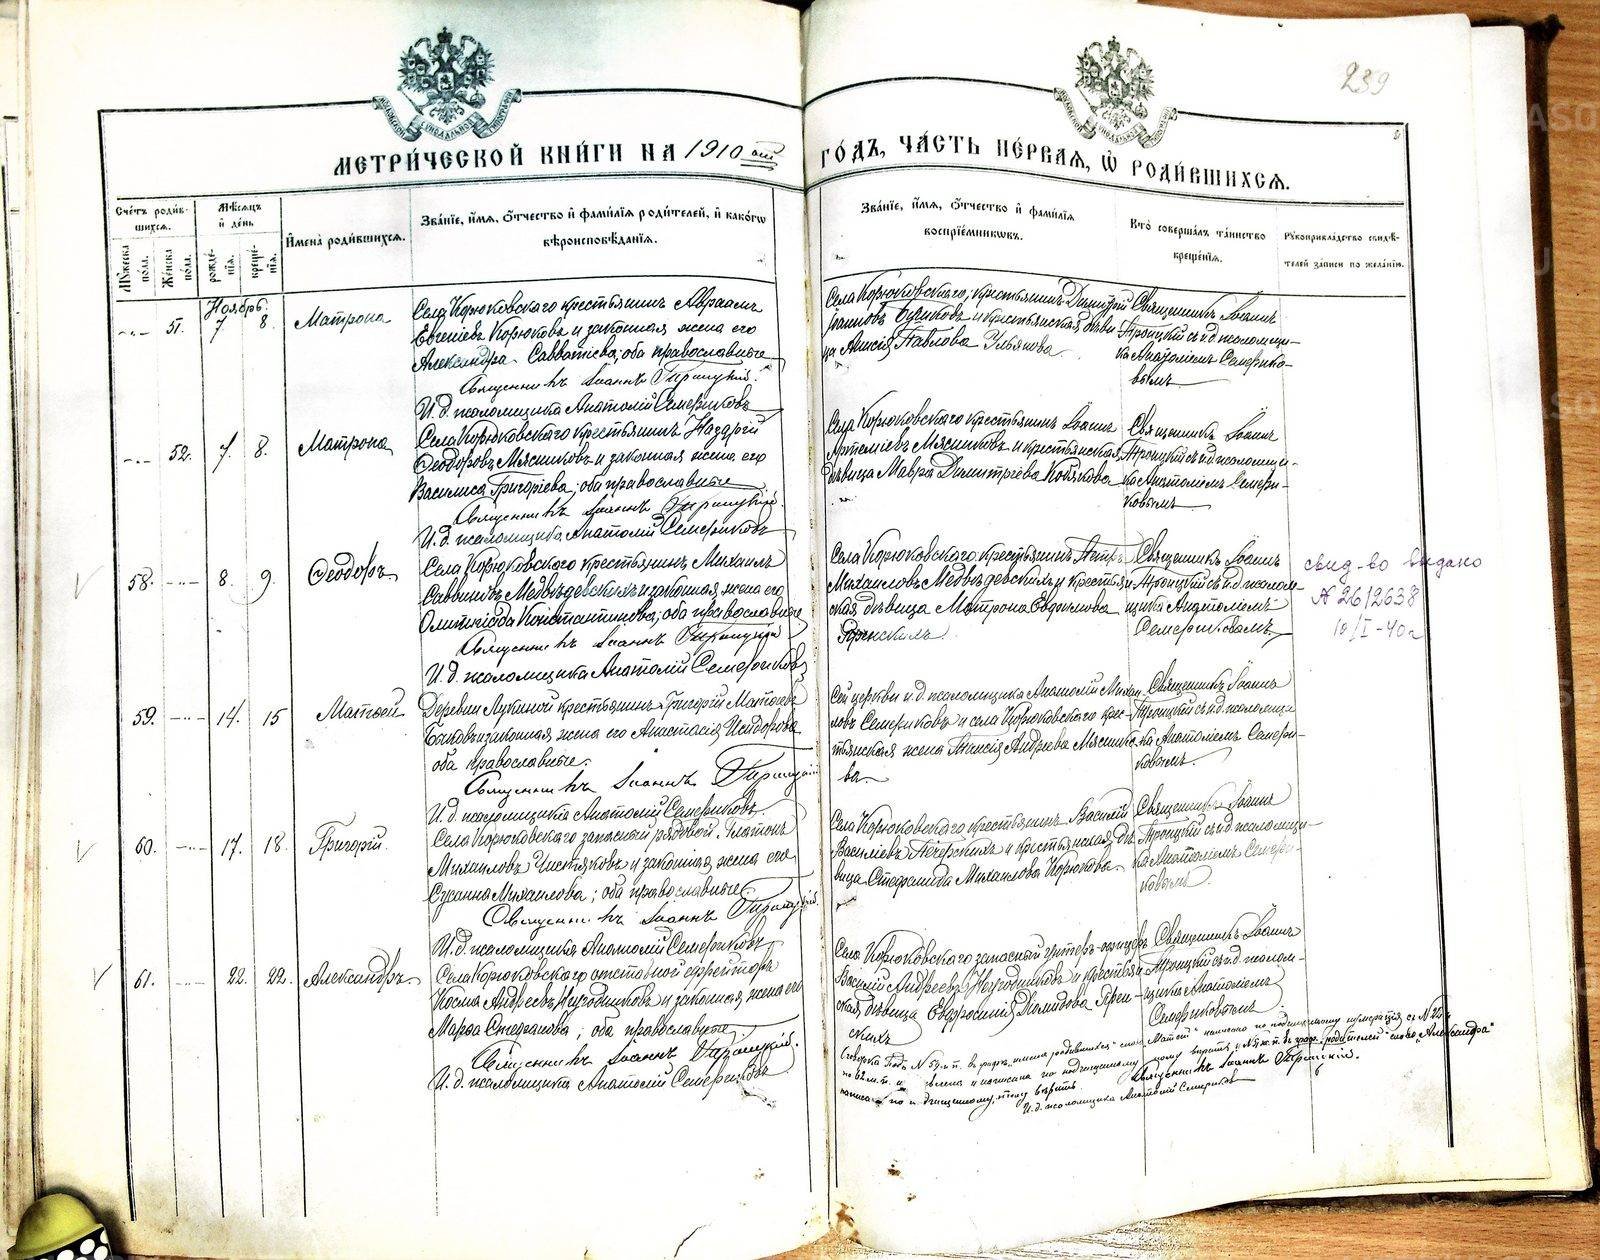 239
МЕТРИ́ЧЕСКОЙ КНИ́ГИ НА 1910 ый
ГО́ДЪ, ЧА́СТЬ ПЕ́РВАЯ, Ѡ҆ РОДИ́ВШИХСѦ.
Сче́тъ роди́в-
шихсѧ.
Мꙋ́жеска по́ла.
Же́нска по́ла.
Мѣ́сѧцъ и҆ де́нь
рожде́-
нїѧ.
креще́-
нїѧ.
И҆мена̀ роди́вшихсѧ.
Зва́нїе, и҆́мѧ, ѻ҆́тчество и҆ фами́лїѧ роди́телей, и҆ како́гѡ
вѣроисповѣ́данїѧ.
Зва́нїе, и҆́мѧ, ѻ҆́тчество и҆ фами́лїѧ
воспрїе́мникѡвъ.
Кто̀ соверша́лъ та́инство
креще́нїѧ.
Рꙋкоприкла́дство свидѣ́-
телей за́писи по жела́нїю.
Ноябрь.
51. 7 8 Матрона
Села Корюковскаго крестьянинъ Авраамъ
Евгеніевъ Корюковъ и законная жена его
Александра Савватіева; оба православные
Священникъ Іоаннъ Троицкій.
И. д. псаломщика Анатолій Семериковъ
Села Корюковскаго, крестьянинъ Димитрій
Іоанновъ и крестьянская дѣви-
ца Павлова
Священникъ Іоаннъ
Троицкій съ и. д. псаломщи-
ка Анатоліемъ Семерико-
вымъ
52. 7. 8. Матрона
Села Корюковскаго крестьянинъ Назарій
Ѳеодоровъ Мясниковъ и законная жена его
Василиса Григоріева; оба православные
Священникъ Іоаннъ Троицкій
И. д. псаломщика Анатолій Семериковъ
Села Корюковскаго крестьянинъ Іоаннъ
Артеміевъ Мясниковъ и крестьянская
дѣвица Мавра Димитріева Кобякова
Священникъ Іоаннъ
Троицкій съ и. д. псаломщи-
ка Анатоліемъ Семери-
ковымъ
58. 8. 9. Ѳеодоръ
Села Корюковскаго крестьянинъ Михаилъ
Саввиновъ Медвѣдевскихъ и законная жена его
Олимпіада Константинова; оба православные
Священникъ Іоаннъ Троицкій
И. д. псаломщика Анатолій Семериковъ
Села Корюковскаго крестьянинъ Петръ
Михаиловъ Медвѣдевскихъ и крестьян-
ская дѣвица Матрона Евдокимова
Священникъ Іоаннъ
Троицкій съ и. д. псалом-
щика Анатоліемъ
Семериковымъ
свид-во выдано
№ 2612638
10/I-40г
59. 14. 15 Матѳей
Деревни Лукиной крестьянинъ Григорій Матѳіевъ
Быковъ и законная жена его Анастасія Исидорова
оба православные.
Священникъ Іоаннъ Троицкій
И. д. псаломщика Анатолій Семериковъ
Сей церкви и. д. псаломщика Анатолій Михаи-
ловъ Семериковъ и села Корюковскаго крес-
тьянская жена Таисія Андреева Мяснико-
ва
Священникъ Іоаннъ
Троицкій съ и. д. псаломщи-
ка Анатоліемъ Семери-
ковымъ.
60. 17. 18. Григорій
Села Корюковскаго запасный рядовой Платонъ
Михаиловъ Чистяковъ и законная жена его
Сусанна Михаилова; оба православные
Священникъ Іоаннъ Троицкій
И. д. псаломщика Анатолій Семериковъ
Села Корюковскаго крестьянинъ Василій
Василіевъ Печерскихъ и крестьянская дѣ-
вица Стефанида Михаилова Корюкова.
Священникъ Іоаннъ
Троицкій съ и. д. псаломщи-
ка Анатоліемъ Семери-
ковымъ.
61. 22. 22. Александръ
Села Корюковскаго отставной ефрейторъ
Косма Андреевъ и законная жена его
Марѳа Стефанова; оба православные.
Священникъ Іоаннъ Троицкій.
И. д. псаломщика Анатолій Семериковъ
Села Корюковскаго запасной унтеръ-офицеръ
Василій Андреевъ и крестьян-
ская дѣвица Евфросинія Діомидова
скихъ
Священникъ Іоаннъ
Троицкій съ и. д. псалом-
щика Анатоліемъ
Семериковымъ.
Оговорка подъ № 59 м. п. въ графѣ „имена родившихся" слово „Матѳей" написано по подчищенному
по 62 м. п. и написана по подчищенному тому вѣрить „родителей" слово „Александра"
написано по подчищенному, тому вѣрить. Священникъ Іоаннъ Троицкій.
И. д. псаломщика Анатолій Семериковъ